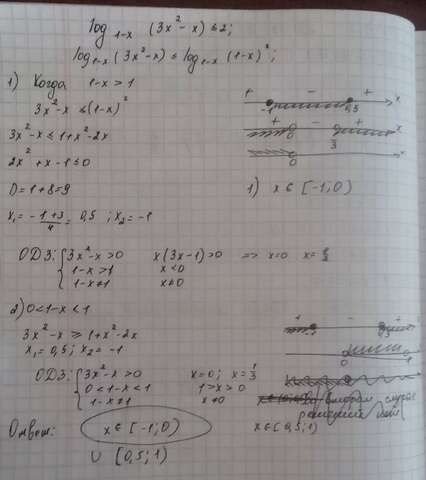 log₁₋ₓ (3x²-x) ≤ 2;
log₁₋ₓ (3x²-x) ≤ log₁₋ₓ (1-x)²;
1) Когда 1-x > 1
3x²-x ≤ (1-x)²
3x²-x ≤ 1+x²-2x
2x²+x-1 ≤ 0
D = 1+8 = 9
x₁ = (-1+3)/4 = 0,5 ; x₂ = -1
+ - + x
-1 0,5
+ - + x
0 1/3
x
0
1) x ∈ [-1; 0)
ОДЗ: { 3x²-x > 0 x(3x-1) > 0 => x=0 x=1/3
1-x > 1 x < 0
1-x ≠ 1 x ≠ 0
2) 0 < 1-x < 1
3x²-x ≥ 1+x²-2x
x₁ = 0,5; x₂ = -1
ОДЗ: { 3x²-x > 0 x=0; x=1/3
0 < 1-x < 1 1 > x > 0
1-x ≠ 1 x ≠ 0
-1 0,5
0 1
x ∈ [0,5; 1)
Ответ: x ∈ [-1; 0)
∪ [0,5; 1)